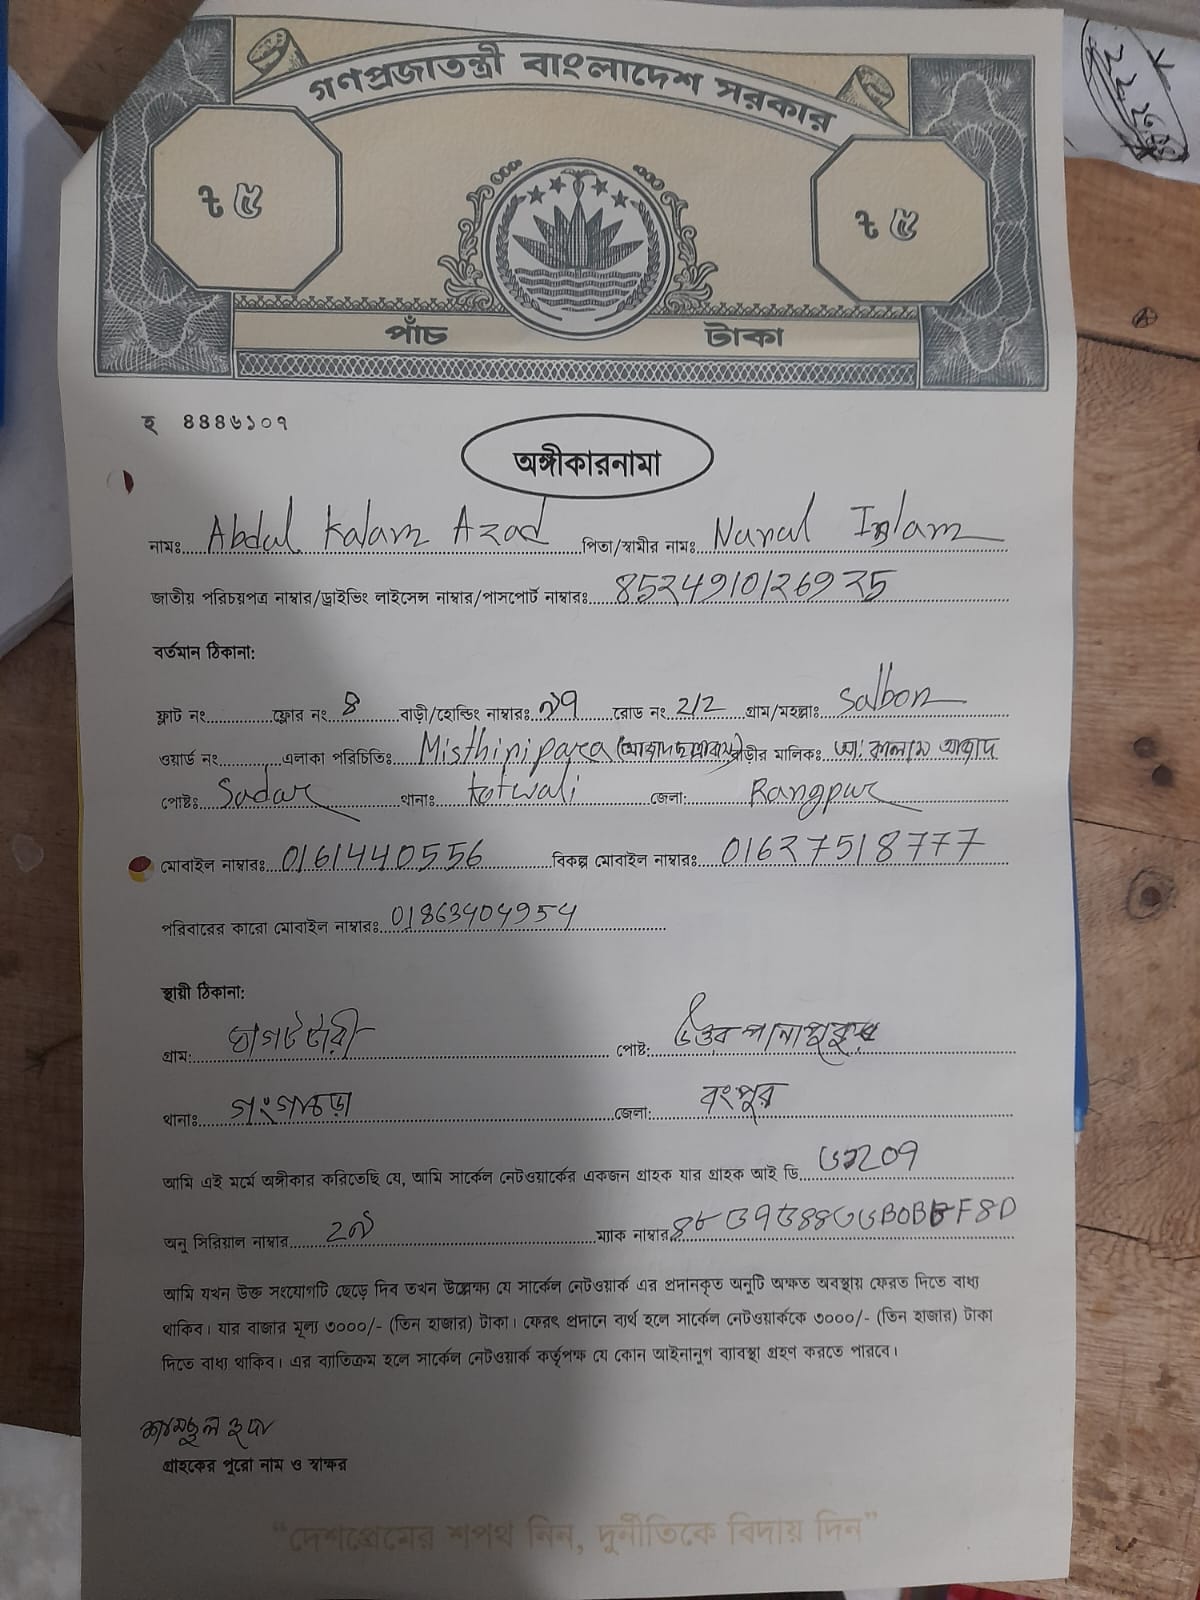 গণপ্রজাতন্ত্রী বাংলাদেশ সরকার
৳ ৫ ৳ ৫
পাঁচ টাকা
হ ৪৪৪৬১০৭
অঙ্গীকারনামা
নামঃ Abdul Kalam Azad পিতা/স্বামীর নামঃ Nurul Islam
জাতীয় পরিচয়পত্র নাম্বার/ড্রাইভিং লাইসেন্স নাম্বার/পাসপোর্ট নাম্বারঃ 8524910126925
বর্তমান ঠিকানা:
ফ্লাট নং ফ্লোর নং 8 বাড়ী/হোল্ডিং নাম্বারঃ রোড নং 2/2 গ্রাম/মহল্লাঃ Salbon
ওয়ার্ড নং এলাকা পরিচিতিঃ Misthiripara বাড়ীর মালিকঃ আঃ কালাম আজাদ
পোষ্টঃ Sadar থানাঃ kotwali জেলা: Rangpur
মোবাইল নাম্বারঃ 0161440556 বিকল্প মোবাইল নাম্বারঃ 01627518777
পরিবারের কারো মোবাইল নাম্বারঃ 01863404954
স্থায়ী ঠিকানা:
গ্রাম: পোষ্ট: উত্তর পানাপুকুর
থানাঃ গংগাচড়া জেলা: রংপুর
আমি এই মর্মে অঙ্গীকার করিতেছি যে, আমি সার্কেল নেটওয়ার্কের একজন গ্রাহক যার গ্রাহক আই ডি
অনু সিরিয়াল নাম্বার ম্যাক নাম্বার
আমি যখন উক্ত সংযোগটি ছেড়ে দিব তখন উল্লেক্ষা যে সার্কেল নেটওয়ার্ক এর প্রদানকৃত অনুটি অক্ষত অবস্থায় ফেরত দিতে বাধ্য
থাকিব। যার বাজার মূল্য ৩০০০/- (তিন হাজার) টাকা। ফেরৎ প্রদানে ব্যর্থ হলে সার্কেল নেটওয়ার্ককে ৩০০০/- (তিন হাজার) টাকা
দিতে বাধ্য থাকিব। এর ব্যাতিক্রম হলে সার্কেল নেটওয়ার্ক কর্তৃপক্ষ যে কোন আইনানুগ ব্যাবস্থা গ্রহণ করতে পারবে।
গ্রাহকের পুরো নাম ও স্বাক্ষর
“দেশপ্রেমের শপথ নিন, দুর্নীতিকে বিদায় দিন”